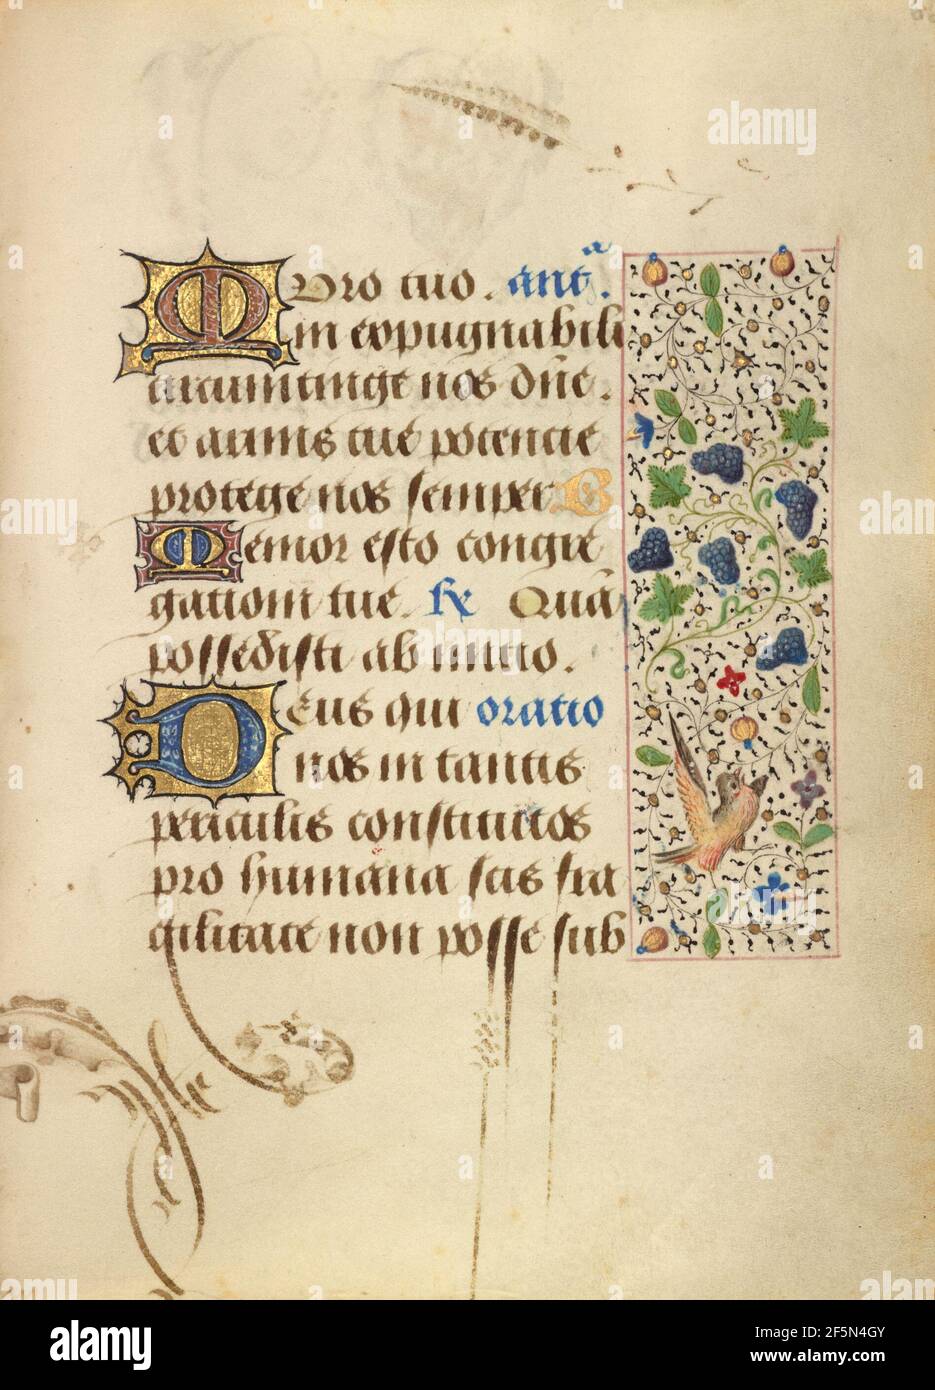 Muro tuo. antᵃ.
in expugnabili
circumtinge nos dñe.
et armis tue potencie
protege nos semper
Memor esto congre
gationi tue. Rx Quã
possedisti ab inicio.
Deus qui oratio
nos in tantis
periculis constitutos
pro humana scis fra
gilitate non posse sub
alamy
Image ID: 2F5N4GY
www.alamy.com